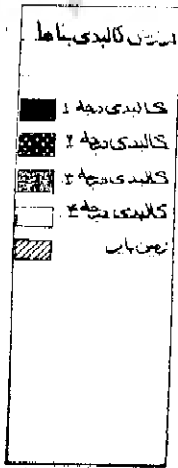 ارزش کالبدی بناها
کالبدی درجه ۱
کالبدی درجه ۲
کالبدی درجه ۳
کالبدی درجه ۴
زمین بایر